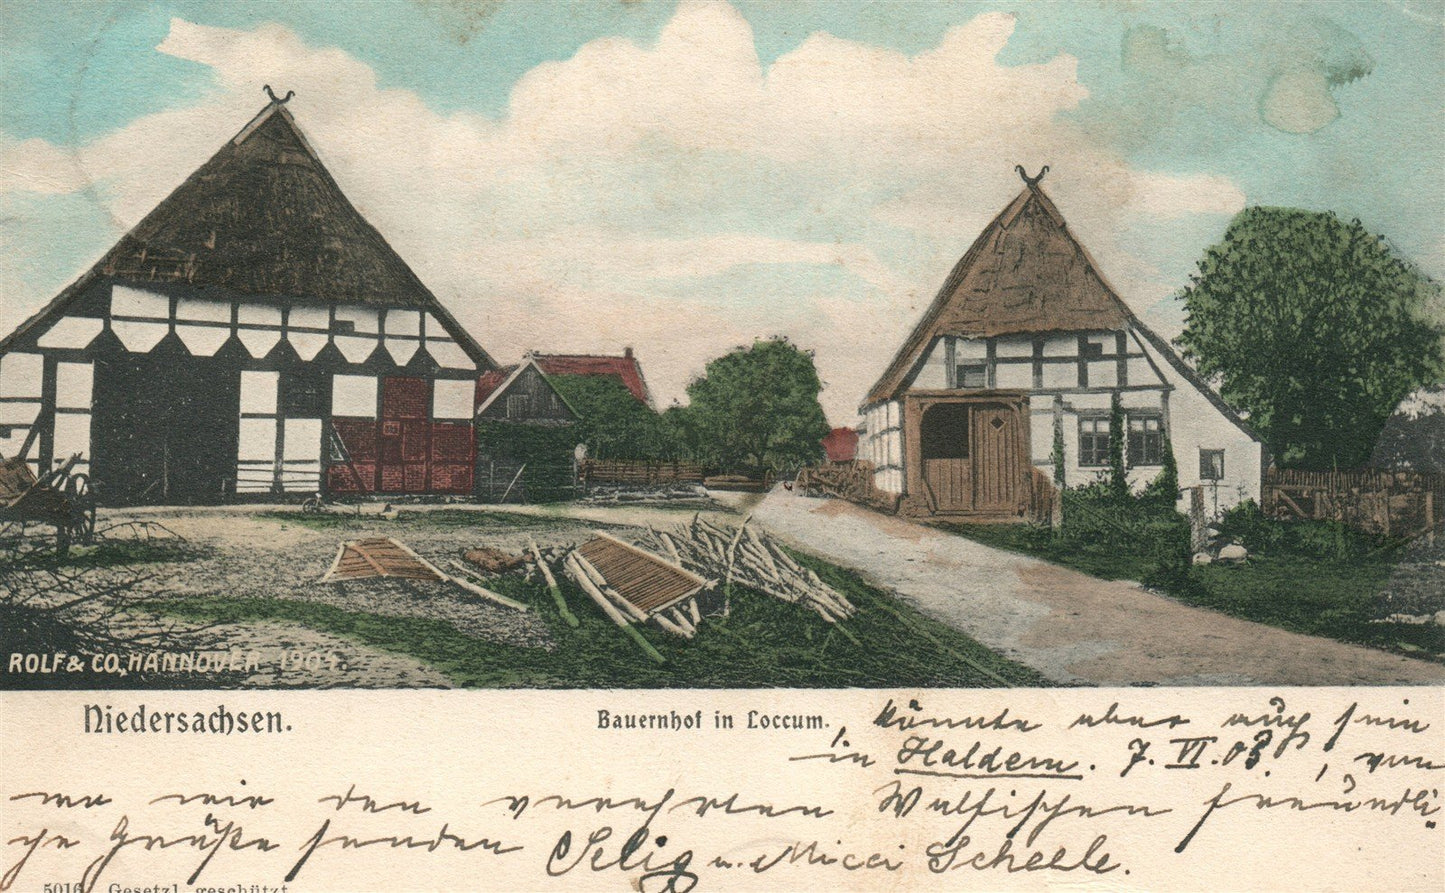 ROLF & CO, HANNOVER 1904.
Niedersachsen.
Bauernhof in Loccum., könnte aber auch sein
in Haldem. 7. VI. 05, von
wo wir den verehrten Walfischen freundli-
che Grüße senden Selig u. Micci Scheele.
5016 Gesetzl. geschützt